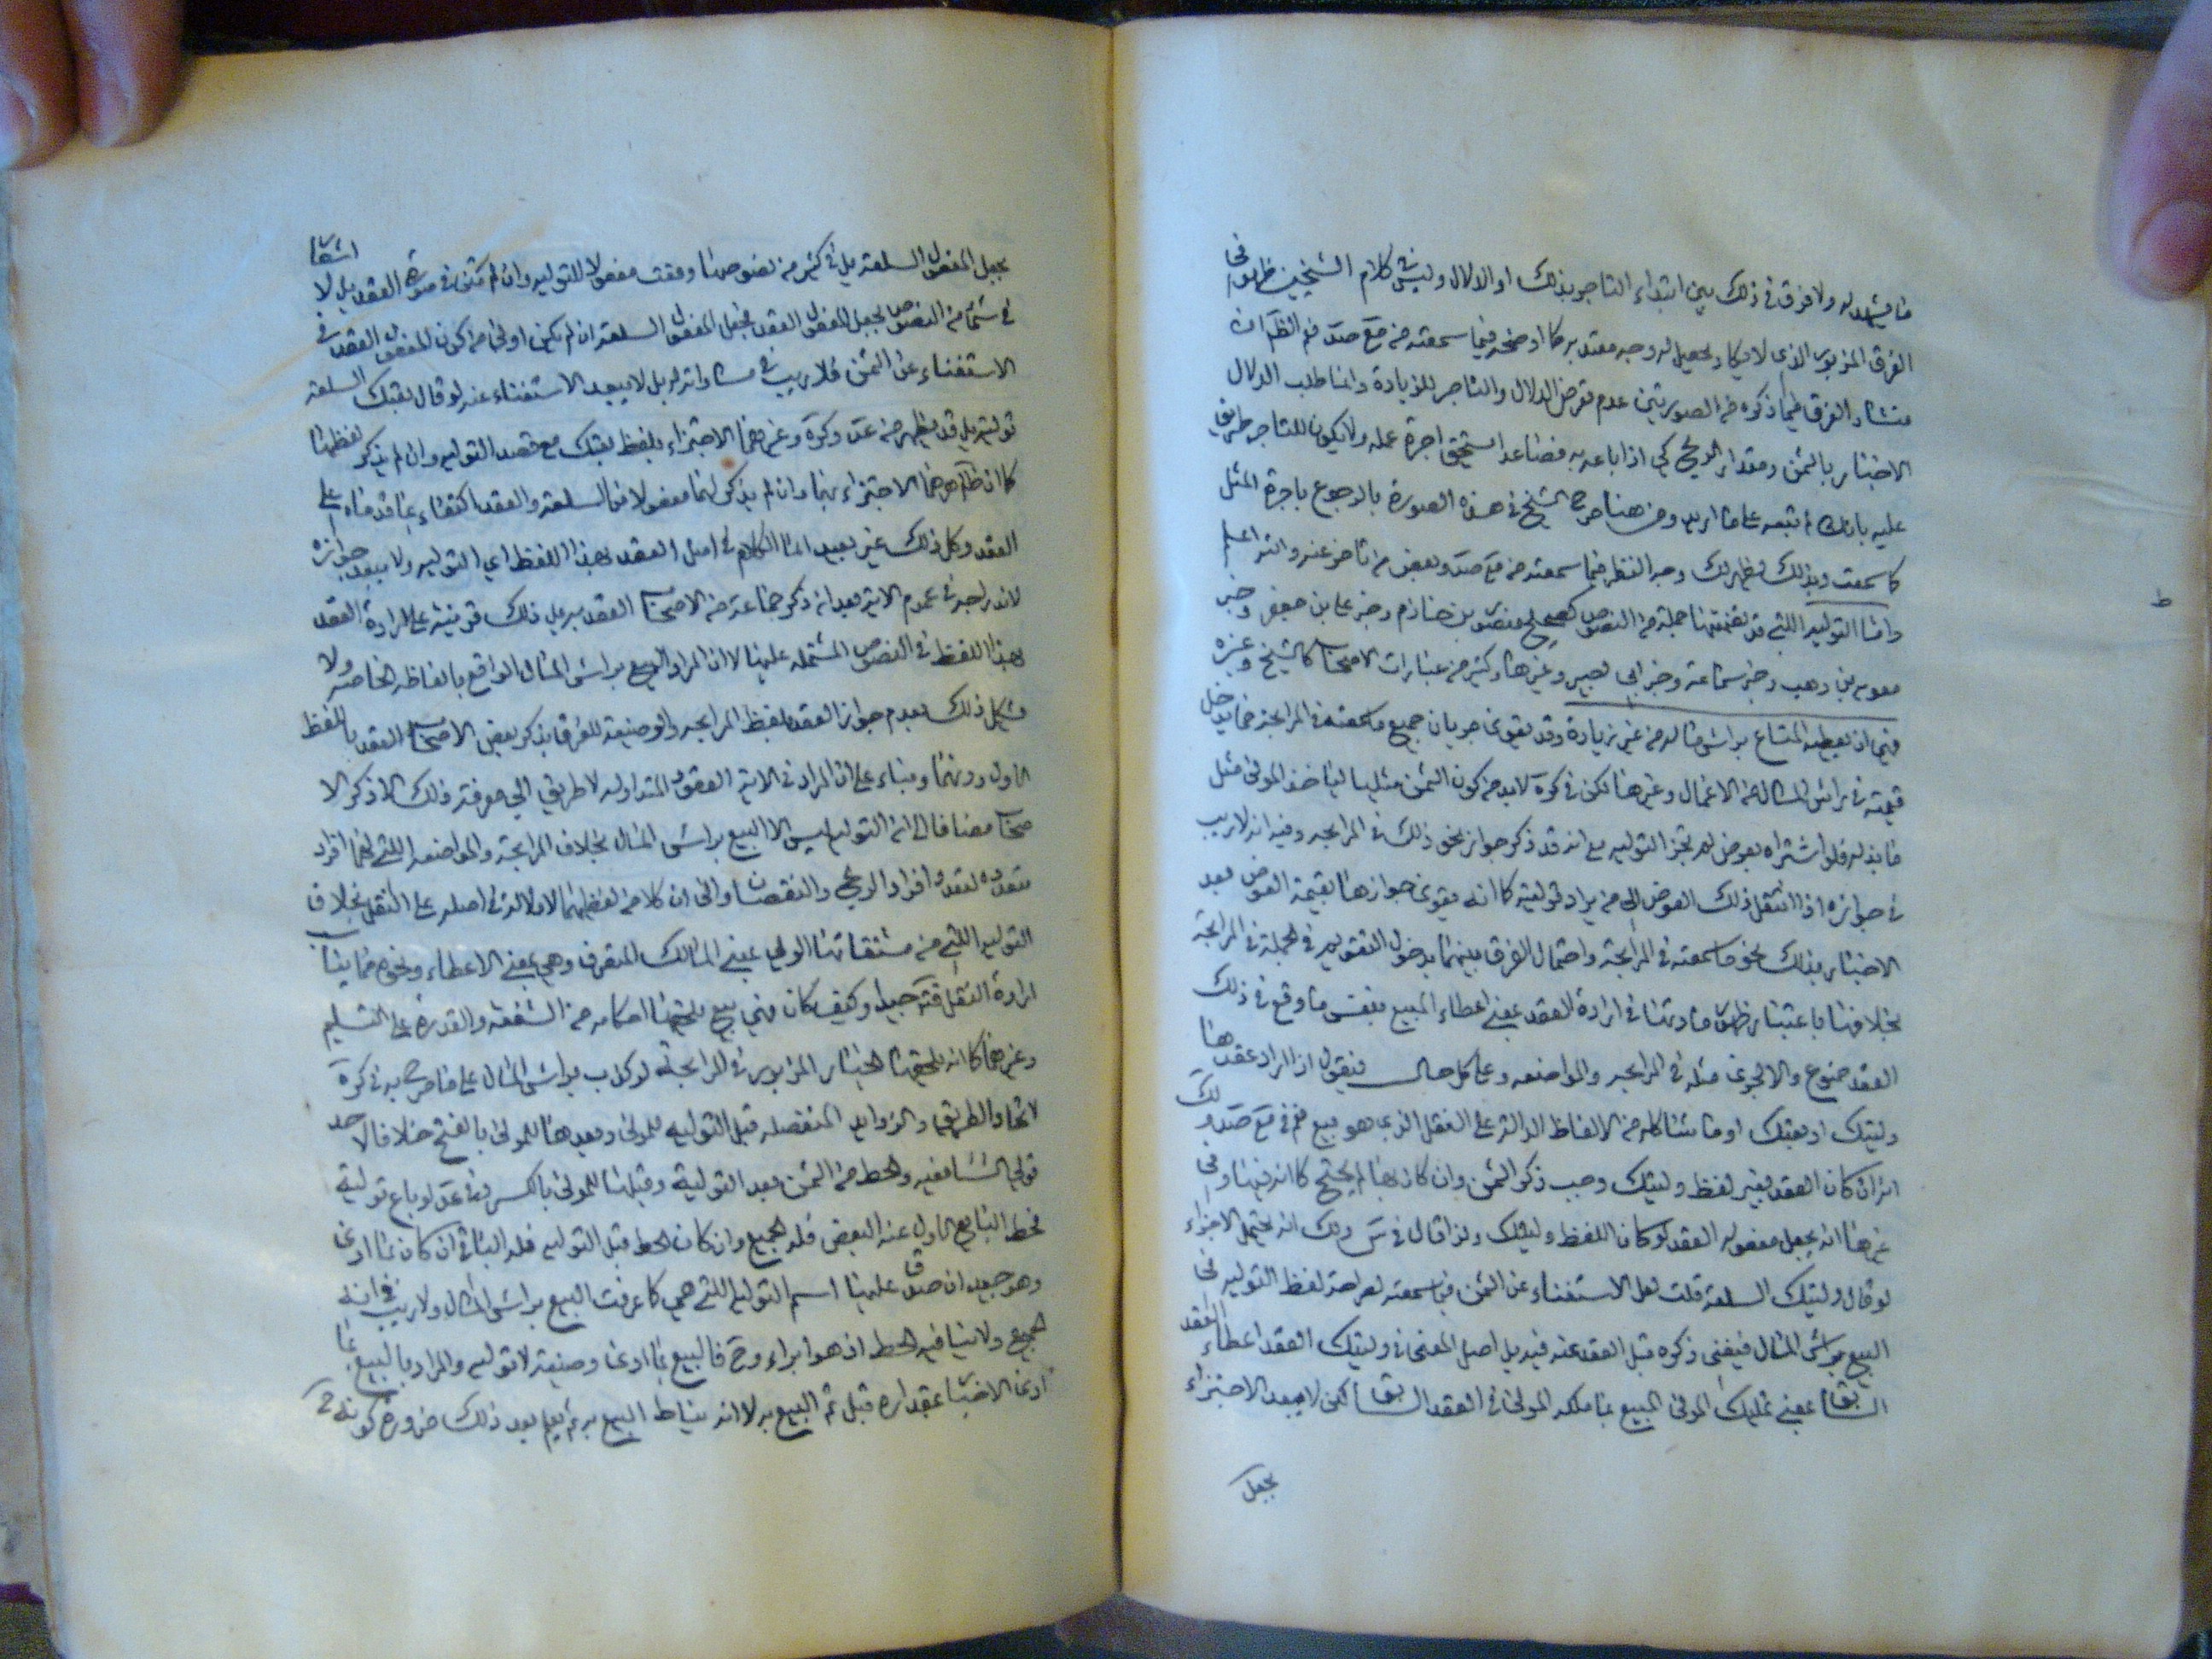 ما يشهد له ولا فرق في ذلك بين ابتداء التاجر بذلك او الدلال وليس في كلام الشيخين ظهور في
الفرق المزبور الذي لا يكاد يحصل له وجه معتد به كما اوضحه فيما سمعته من مع صد نعم الظ ان
منشاء الفرق فيما ذكروه من الصورتين عدم تعرض الدلال والتاجر للزيادة وانما طلب الدلال
الاخبار بالثمن ومقدار الربح كي اذا باعه به فصاعدا استحق اجرة عمله ولا يكون للتاجر طريق
عليه بانك لم تبعه على ما اريد ومن هنا صرح الشيخ في هذه الصورة بالرجوع باجرة المثل
كما سمعت وبذلك يظهر لك وجه النظر فيما سمعته من مع صد وبعض من تاخر عنه والله اعلم
واما التولية اللتي قد تضمنتها جملة من النصوص كصحيح منصور بن حازم وخبر علي بن جعفر وخبر
معوية بن وهب وخبر سماعة وخبر ابي بصير وغيرها وكثير من عبارات الاصحاب كالشيخ وغيره
فهي ان يعطيه المتاع براس ماله من غير زيادة وقد يقوى جريان جميع ما سمعته في المرابحة مما يدخل
قيمته في راس المال من الاعمال وغيرها لكن في كرة لا بد من كون الثمن مثليا لياخذ المولى مثل
ما بذله فلو اشتراه بعرض لم تجز التولية مع انه قد ذكر جواز نحو ذلك في المرابحة وفيه انه لا ريب
في جوازه اذا انتقل ذلك العرض الى من يراد توليته كما انه يقوى جوازها بقيمة العوض بعد
الاخبار بذلك نحو ما سمعته في المرابحة واحتمال الفرق بينهما بدخول التقويم في الجملة في المرابحة
بخلافها باعتبار ظهور مادتها في ارادة العقد بمعنى اعطاء المبيع بنفس ما وقع في ذلك
العقد ممنوع والا لجرى مثله في المرابحة والمواضعة وعلى كل حال فنقول اذا اراد عقدها
وليتك او بعتك او ما شاكله من الالفاظ الدالة على النقل الذي هو بيع نعم في مع صد ولك
انه ان كان العقد بغير لفظ وليتك وجب ذكر الثمن وان كان بها لم يحتج كما ان فيها وفي
غيرها انه يجعل مفعوله العقد لو كان اللفظ وليتك ولذا قال في س ولك انه يحتمل الاجزاء
لو قال وليتك السلعة قلت لعل الاستغناء عن الثمن فيما سمعته لصراحة لفظ التولية في
البيع براس المال فيغني ذكره قبل العقد عنه فيه بل اصل المعنى في وليتك العقد اعطاء العقد
السابق بمعنى تمليك المولى المبيع بما ملكه المولي في العقد السابق لكن لا يبعد الاجتزاء
يجعل
يجعل المفعول السلعة بل في كثير من نصوصنا وقعت مفعولا للتولية وان لم تكن في صورة العقد بل لا اشعار
في شئ من النصوص بجعل المفعول العقد فجعل المفعول السلعة ان لم يكن اولى من كون المفعول العقد في
الاستغناء عن الثمن فلا ريب في مساواته له بل لا يبعد الاستغناء عنه لو قال بعتك السلعة
تولية بل قد يظهر من عد وكرة وغيرهما الاجتزاء بلفظ بعتك مع قصد التولية وان لم يذكر لفظها
كما ان ظاهرهما الاجتزاء بهما وان لم يذكر لهما مفعولا من السلعة والعقد اكتفاء بما قدماه على
العقد وكل ذلك غير بعيد انما الكلام في اصل العقد بهذا اللفظ اي التولية ولا يبعد جوازه
لاندراجه في عموم الاية بعد ان ذكر جماعة من الاصحاب العقد به بل ذلك قرينة على ارادة العقد
بهذا اللفظ في النصوص المشتملة عليها لا ان المراد البيع براس المال الواقع بالفاظه الخاصة ولا
يشكل ذلك بعدم جواز العقد بلفظ المرابحة والوضيعة للفرق بذكر بعض الاصحاب العقد باللفظ
الاول دونهما وبناء على ان المراد في الاية العقود المتداولة لا طريق الى معرفة ذلك الا ذكر الا
صحاب مضافا الى ان التولية ليس الا البيع براس المال بخلاف المرابحة والمواضعة اللتي لهما افراد
متعددة لتعدد افراد الربح والنقصان والى ان كلا من لفظهما لا دلالة في اصله على النقل بخلاف
التولية اللتي من مشتقاتها الولي بمعنى المالك المتصرف وهي بمعنى الاعطاء ونحوه مما يناسب
ارادة النقل فتم جيدا وكيف كان فهي بيع يلحقها احكامه من الشفعة والقدرة على التسليم
وغيرهما كما انه يلحقها الخيار المزبور في المرابحة لو كذب براس المال على ما صرح به في كرة
لاتحاد الطريق والزوايد المنفصلة قبل التولية للمولي وبعدها للمولى بالفتح خلافا لاحد
قولي الشافعية والحط من الثمن بعد التولية وقبلها للمولي بالكسر وفي عد لو باع تولية
فحط البايع الاول عنه البعض فله الجميع وان كان الحط قبل التولية فله الباقي ان كان بما ادى
وهو جيد ان صدق عليها اسم التولية اللتي هي كما عرفت البيع براس المال ولا ريب في انه
الجميع ولا ينافيه الحط اذ هو ابراء وح فالبيع بما ادى وضيعة لا تولية والمراد بالبيع بما
ادى الاخبار بمقداره قبل ثم البيع به لا انه يناط البيع به ثم يعلم بعد ذلك ضرورة كونه ح